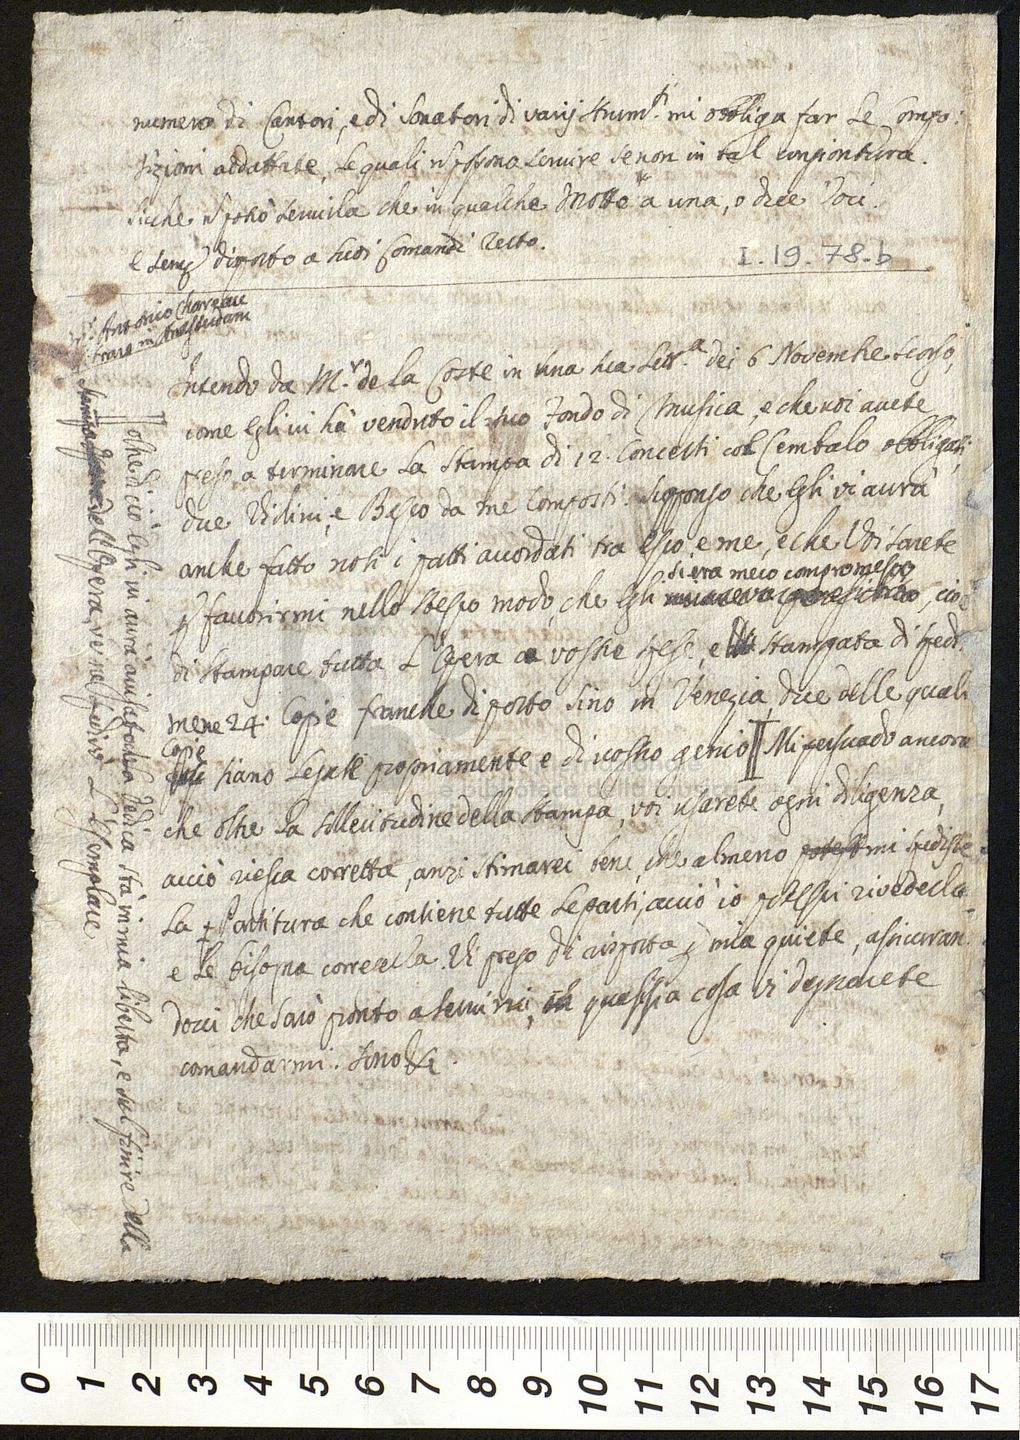 numero di Cantori, e di Sonatori di varij strum.ti mi obbliga far le Compo:
sizioni addattate, le quali ñ possono servire se non in tal congiontura.
siche ñ potrò servirla che in qualche Motto a una, o due Voci.
disposto a suoi Comandi resto.
I. 19. 78. b
Antonio Chareau
in Amsterdam
Intendo da M.r de la Coste in una sua lett.a dei 6 Novembre scorso,
come Egli vi hà venduto il suo Fondo di Musica, e che voi avete
preso a terminare la stampa di 12. Concerti col Cembalo obbligati,
due Violini, e Basso da me composti. Suppongo che Egli vi aurà
anche fatto noti i patti accordati tra esso, e me, e che Voi sarete
si era meco compromesso
p favorirmi nello stesso modo, che Egli , cioè
di stampare tutta l'Opera a vostre spese, e stampata di spedir:
mene 24. Copie franche di porto sino in Venezia, due delle quali
Copie
siano legate propriamente e di vostro genio Mi persuado ancora
che oltre la sollecitudine della stampa, voi usarete ogni diligenza,
acciò riesca corretta, anzi stimarei bene, che almeno mi spediste
la Partitura che contiene tutte le parti, acciò io potessi rivederla
e se bisogna correggerla. Vi prego di risposta p mia quiete, assicuran
dovi che sarò pronto a servirvi, in qualsisia cosa vi degnarete
comandarmi. Sono &c.
oltre diciò Egli vi aurà avisato che la Dedica stà in mia libertà, e sul finire della
stampa dell'Opera, ve ne spedirò l'Esemplare